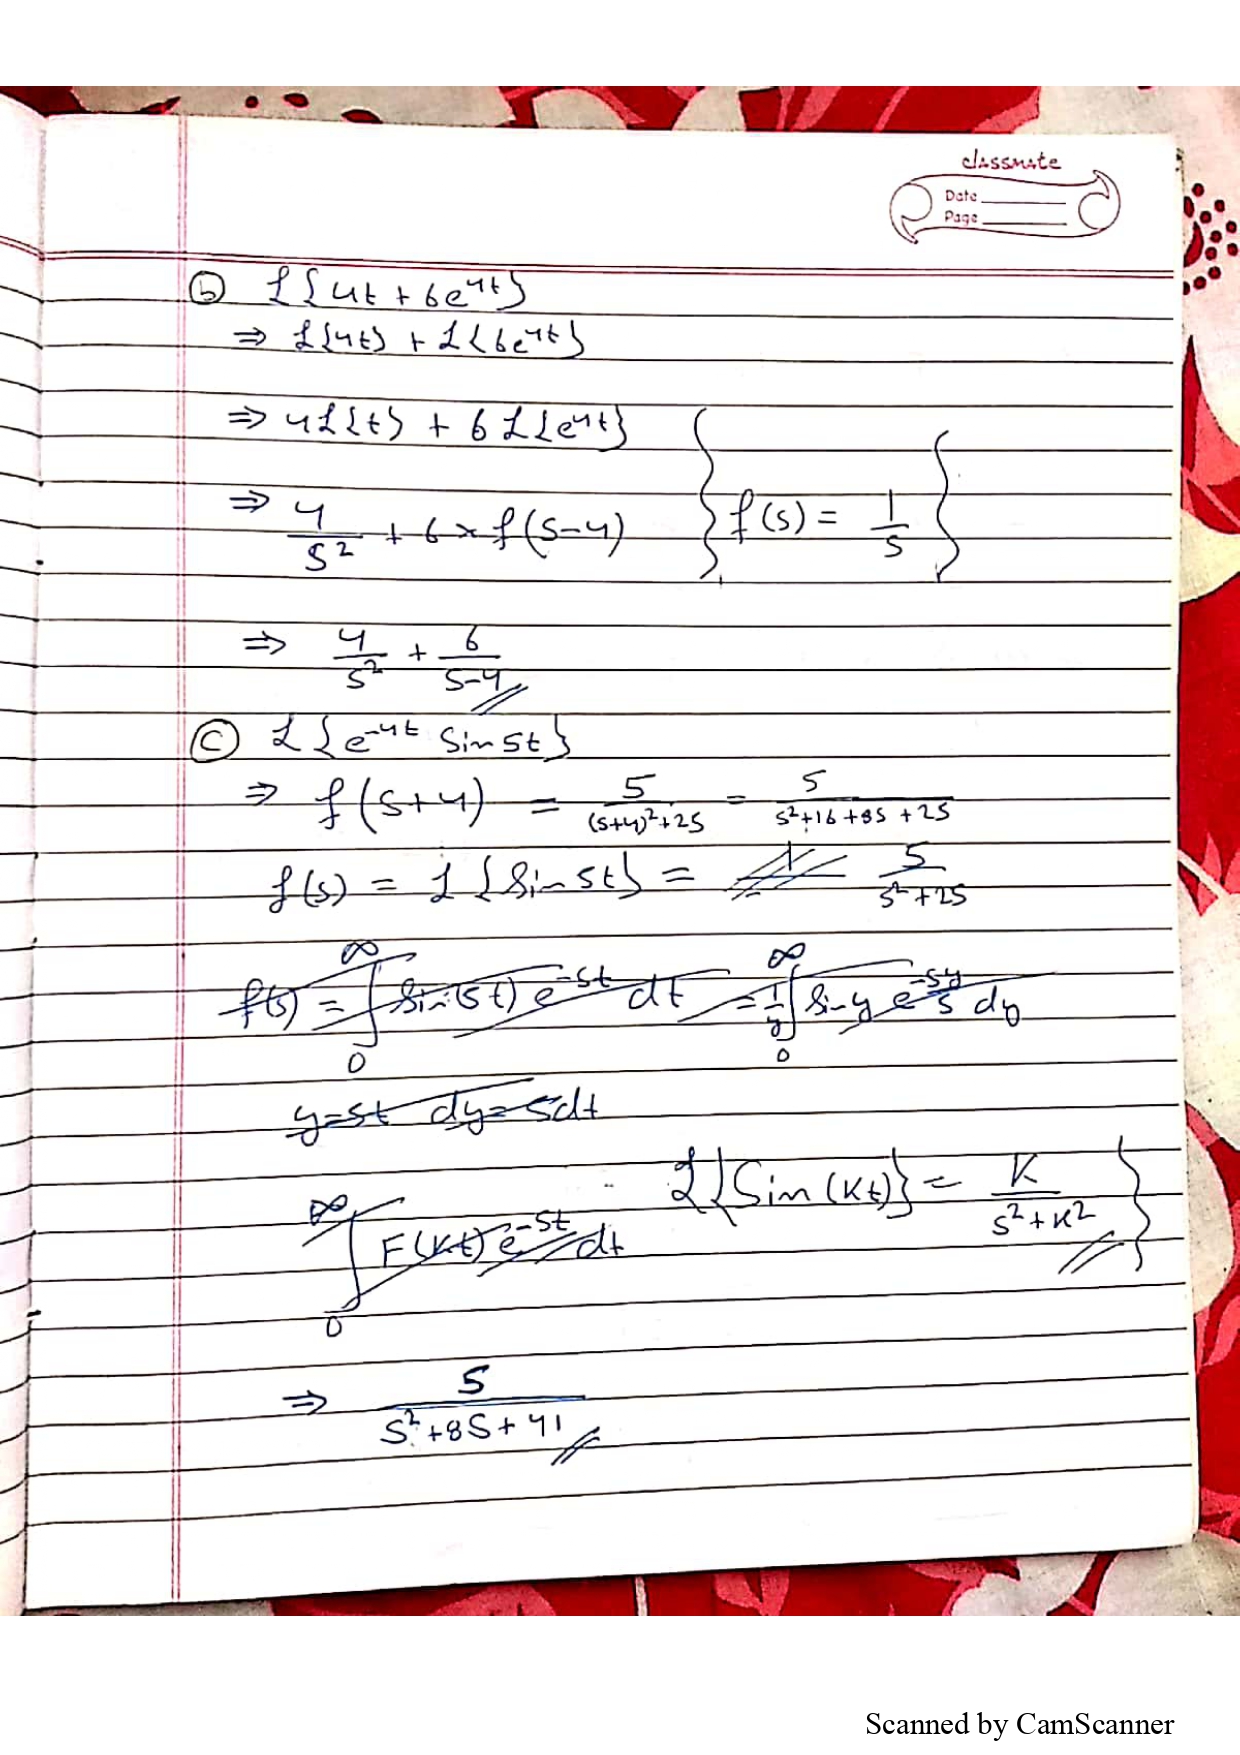 classmate
Date
Page
ⓑ ℒ{4t + 6e^{4t}}
⇒ ℒ{4t} + ℒ{6e^{4t}}
⇒ 4ℒ{t} + 6ℒ{e^{4t}}
⇒ 4/s² + 6 × f(s-4) { f(s) = 1/s }
⇒ 4/s² + 6/(s-4)
ⓒ ℒ{e^{-4t} Sin5t}
⇒ f(s+4) = 5/((s+4)²+25) = 5/(s²+16+8s+25)
f(s) = ℒ{Sin5t} = 5/(s²+25)
f(s) = ∫₀^∞ Sin(5t) e^{-st} dt = 1/y ∫₀^∞ Siny e^{-sy/5} dy
y=5t dy=5dt
ℒ{Sin(Kt)} = K/(s²+K²) }
∫₀^∞ F(Kt) e^{-st} dt
⇒ 5/(s²+8s+41)
Scanned by CamScanner